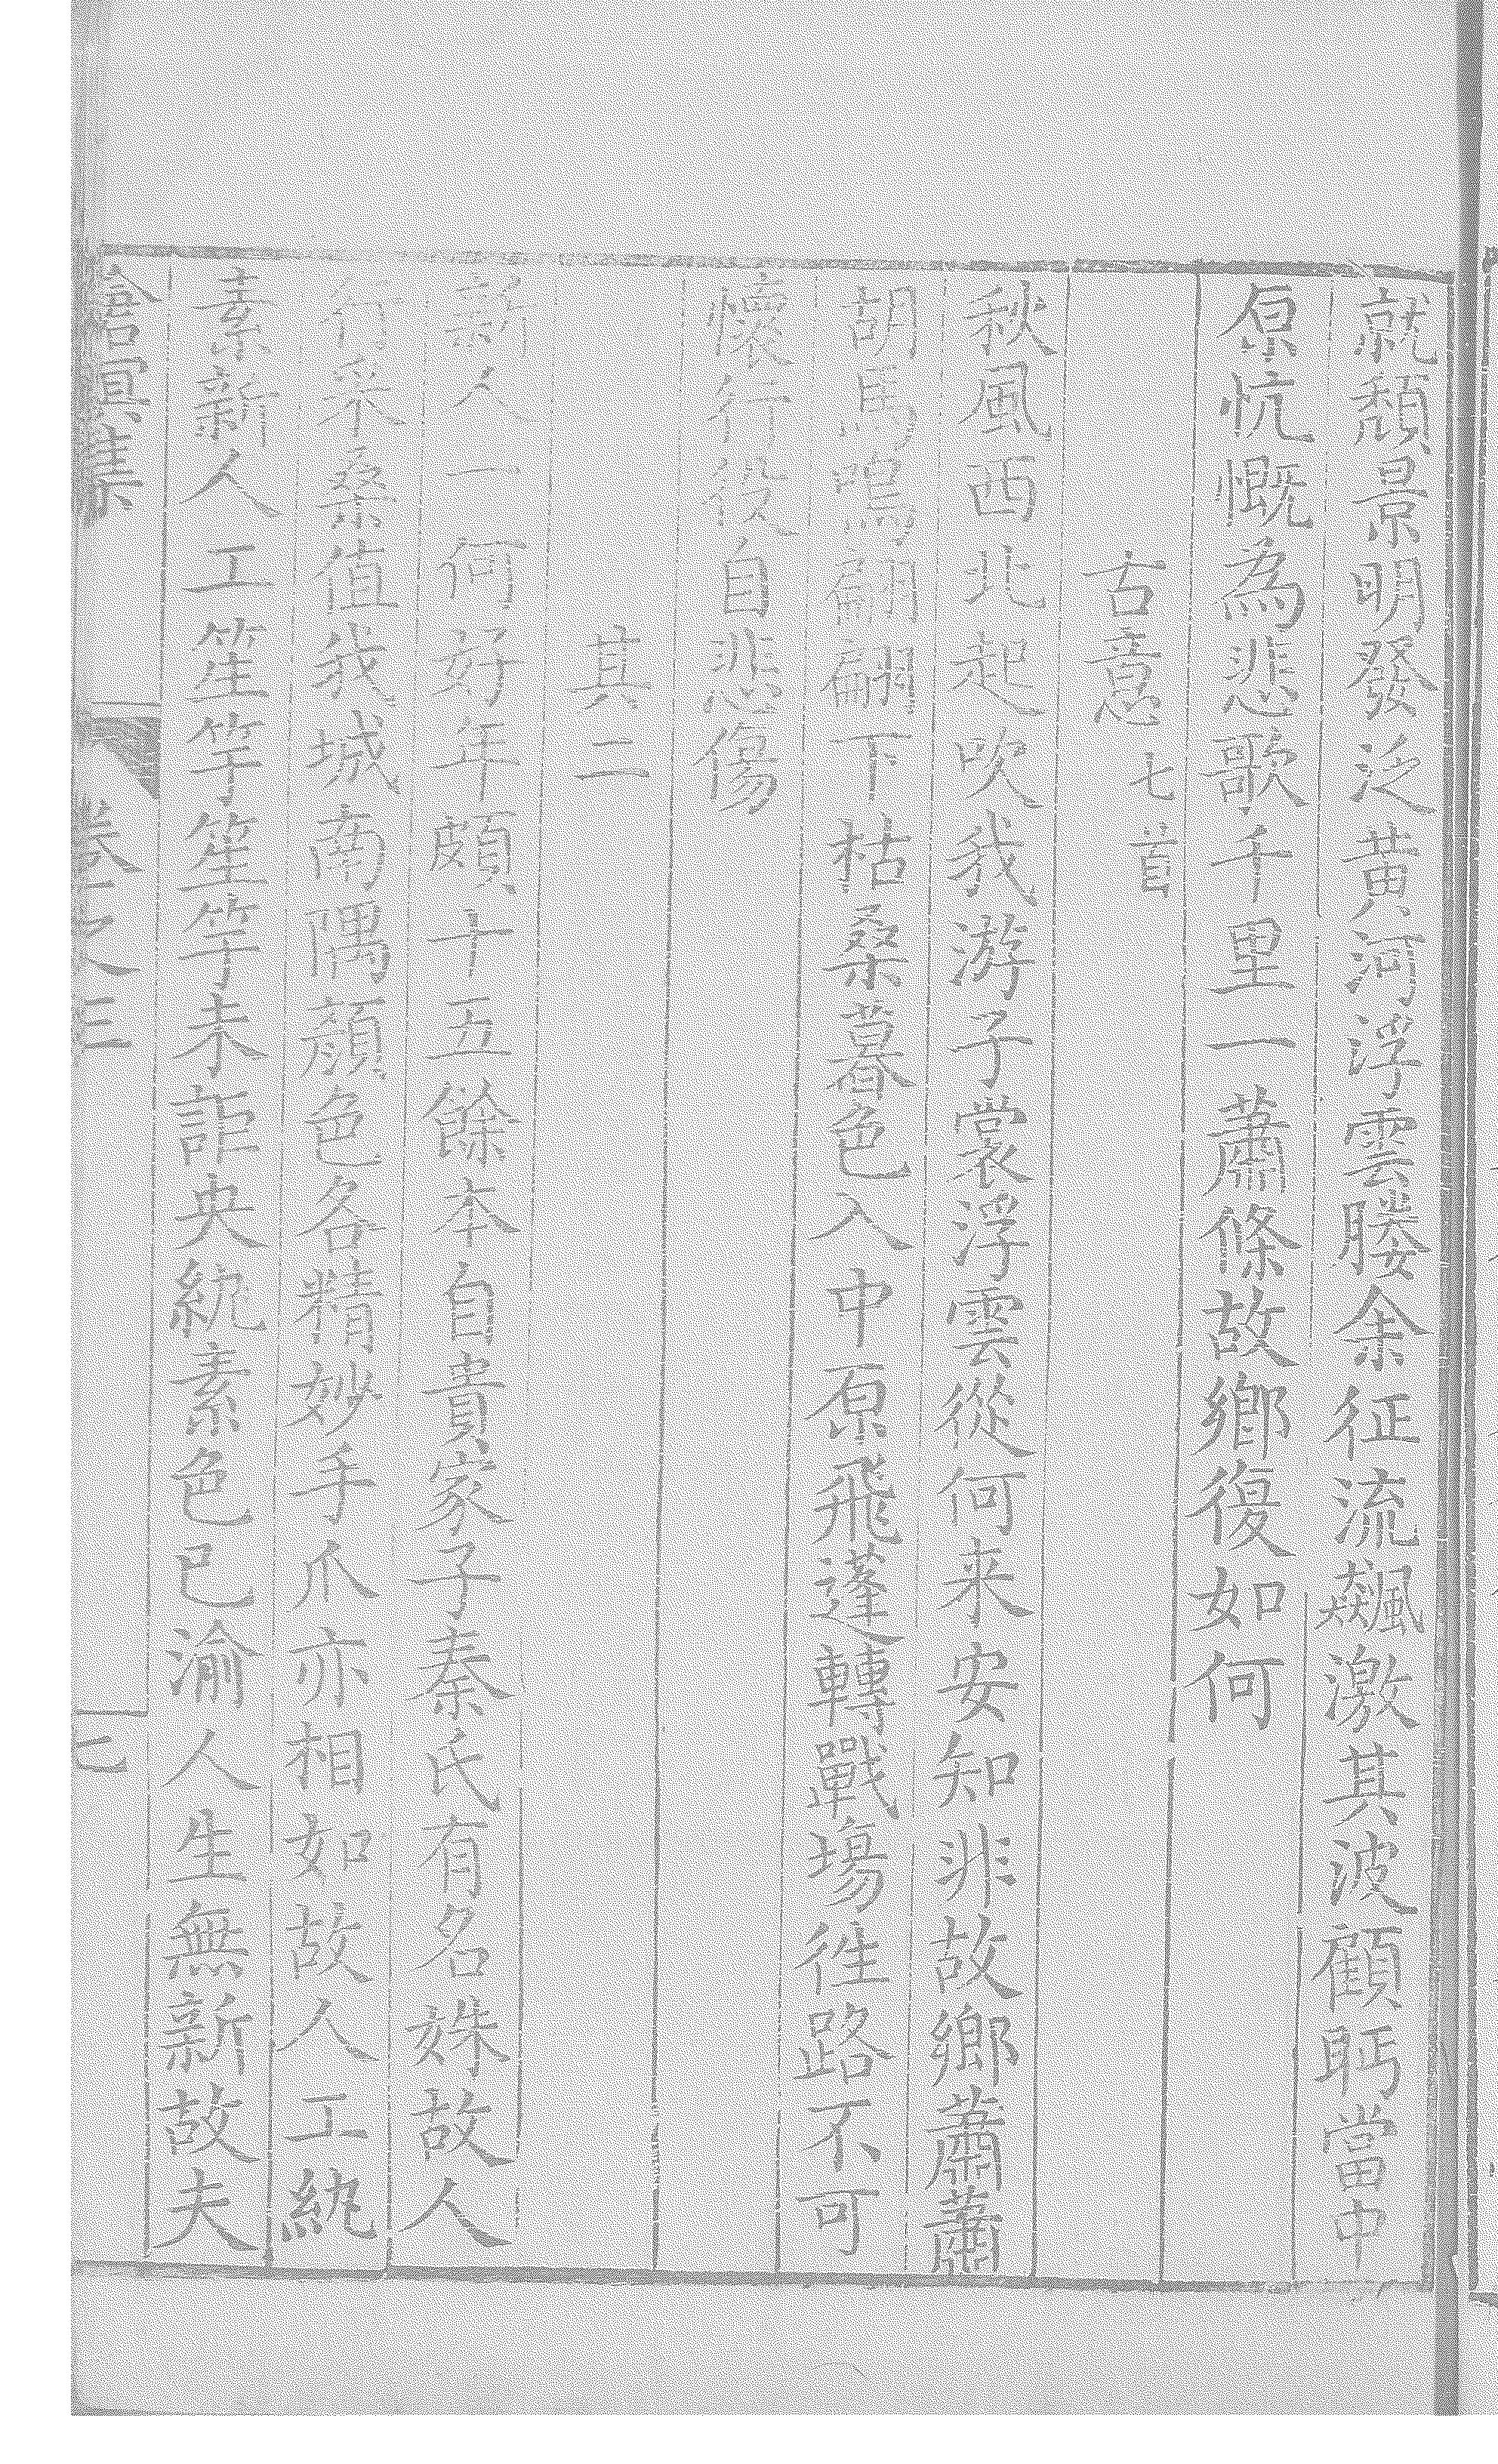 就頹景明發泛黃河浮雲媵余征流飆激其波顧眄當中
原忼慨為悲歌千里一蕭條故鄉復如何
古意七首
秋風西北起吹我游子裳浮雲從何来安知非故鄉蕭蕭
胡馬鳴翩翩下枯桑暮色入中原飛蓬轉戰場徃路不可
懷行役自悲傷
其二
新人一何好年頗十五餘本自貴家子秦氏有名姝故人
行采桑值我城南隅顏色各精妙手爪亦相如故人工紈
素新人工笙竽笙竽未詎央紈素色已渝人生無新故夫
滄溟集
卷之三
七